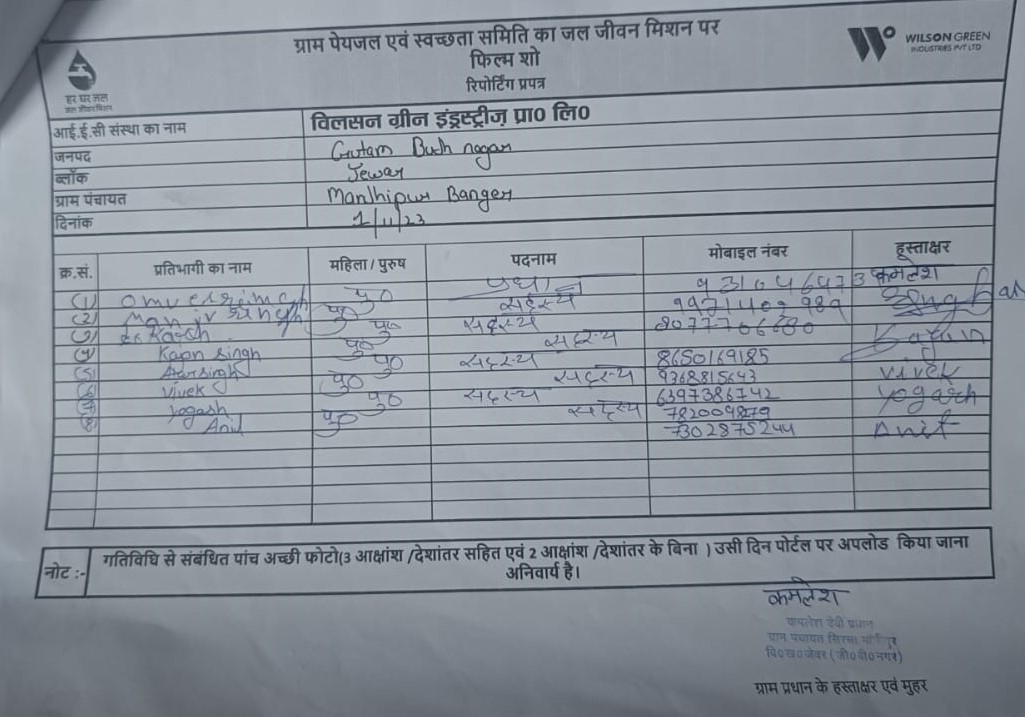 ग्राम पेयजल एवं स्वच्छता समिति का जल जीवन मिशन पर
फिल्म शो
रिपोर्टिंग प्रपत्र
हर घर जल
जल जीवन मिशन
WILSON GREEN
INDUSTRIES PVT LTD
आई.ई.सी संस्था का नाम विलसन ग्रीन इंड्स्ट्रीज़ प्रा0 लि0
जनपद Gutam Budh nagar
ब्लॉक Jewar
ग्राम पंचायत Manjhipur Banger
दिनांक 1/11/23
क्र.सं. प्रतिभागी का नाम महिला / पुरुष पदनाम मोबाइल नंबर हूस्ताक्षर
(1) पु0 9310464973 कमलेश
(2) Manvir Singh पु0 सदस्य
(3) पु0 सदस्य
(4) Kapn Singh पु0 सदस्य
(5) पु0 सदस्य 8650169185
(6) Vivek पु0 सदस्य 9368815643 Vivek
(7) Yogash पु0 सदस्य 6397386742 Yogash
(8) Anil पु0 सदस्य 7820098279
7302875244 Anil
नोट :- गतिविधि से संबंधित पांच अच्छी फोटो(3 आक्षांश /देशांतर सहित एवं 2 आक्षांश /देशांतर के बिना ) उसी दिन पोर्टल पर अपलोड किया जाना
अनिवार्य है।
कमलेश
कमलेश देवी प्रधान
ग्राम पंचायत सिरसा
वि०ख०जेवर (जी०बी०नगर)
ग्राम प्रधान के हस्ताक्षर एवं मुहर